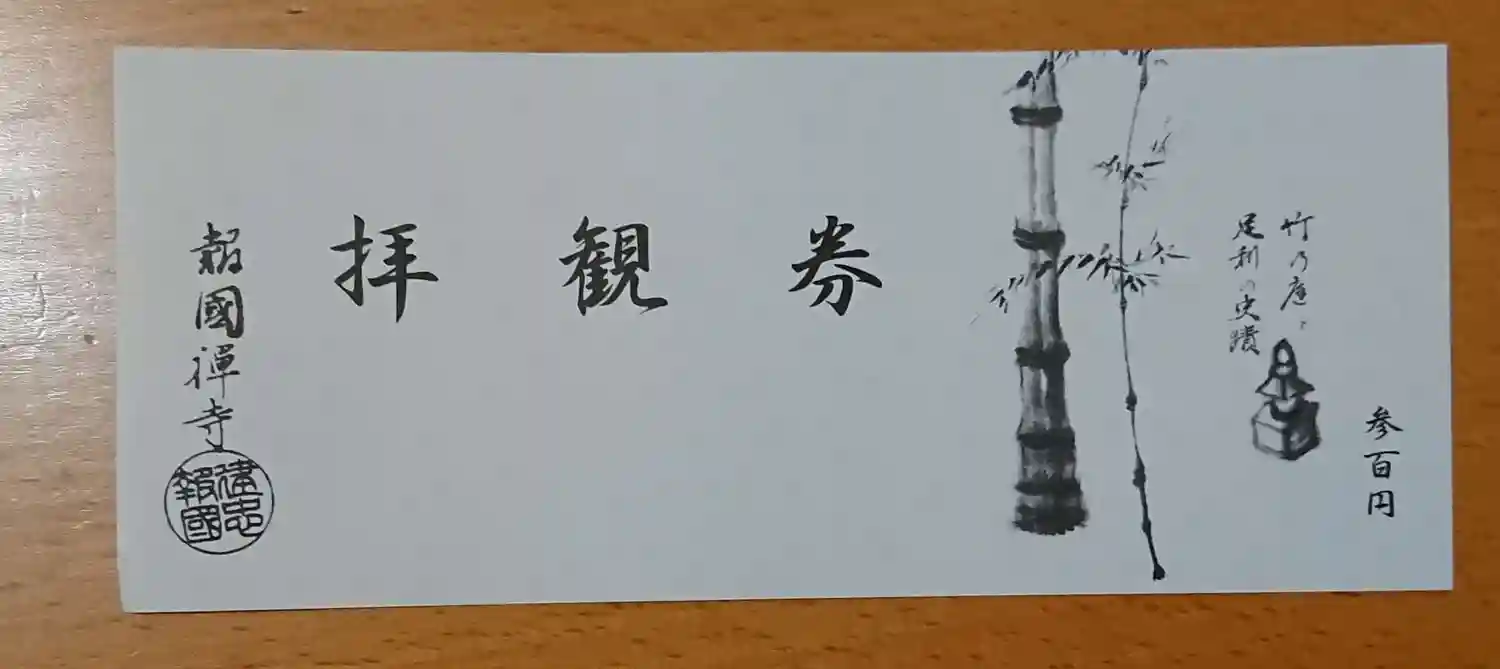 拝観券
竹乃庭と
足利の史蹟
参百円
報國禅寺
建忠
報國